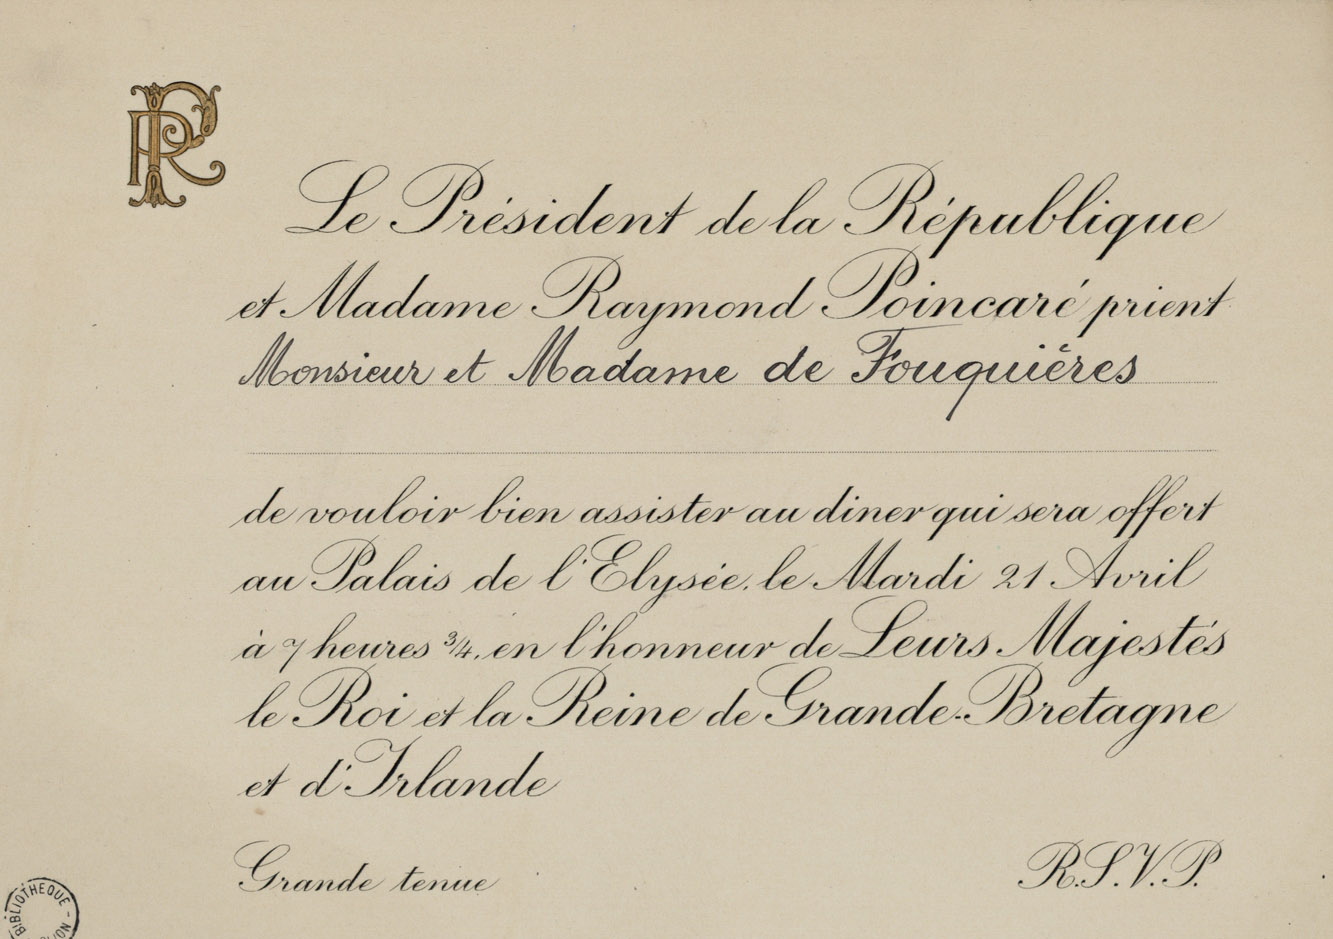 RF
Le Président de la République
et Madame Raymond Poincaré prient
Monsieur et Madame de Fouquières
de vouloir bien assister au diner qui sera offert
au Palais de l'Elysée, le Mardi 21 Avril
à 7 heures 3/4, en l'honneur de Leurs Majestés
le Roi et la Reine de Grande-Bretagne
et d'Irlande
Grande tenue
R.S.V.P.
BIBLIOTHEQUE -